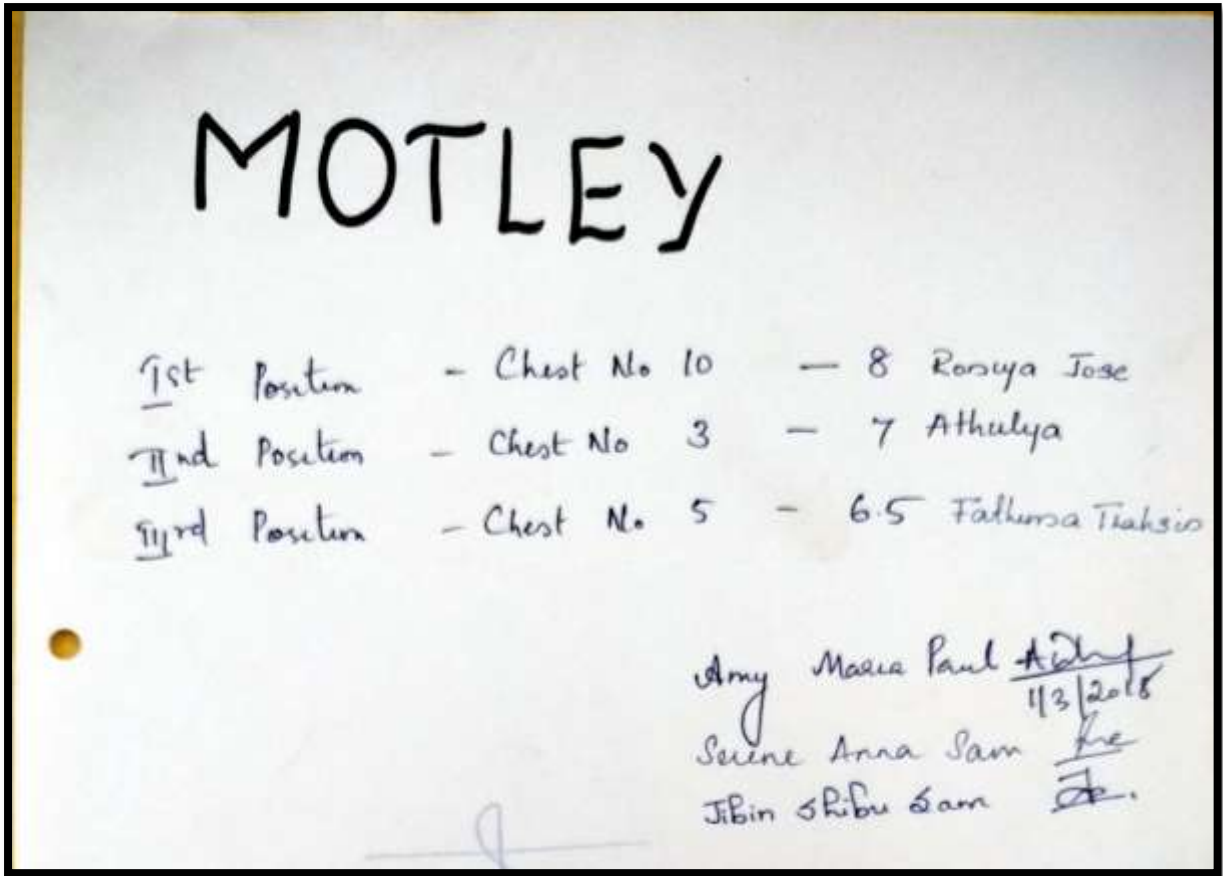 MOTLEY
Ist Position - Chest No 10 - 8 Rosiya Jose
IInd Position - Chest No 3 - 7 Athulya
IIIrd Position - Chest No 5 - 6.5 Fathima
Amy Maria Paul
1/3/2018
Serene Anna Sam
Jibin Shibu Sam